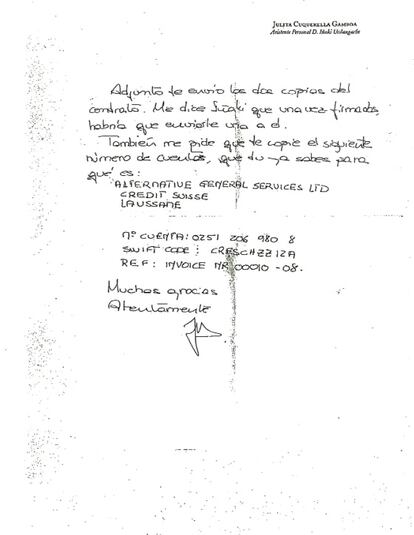 JULITA CUQUERELLA GAMBOA
Asistente Personal D. Iñaki Urdangarin
Adjunto te envío las dos copias del
contrato. Me dice Iñaki que una vez firmada,
habría que enviarle una a él.
También me pide que te copie el siguiente
número de cuenta, que tú ya sabes para
qué es:
ALTERNATIVE GENERAL SERVICES LTD
CREDIT SUISSE
LAUSSANE
Nº CUENTA: 0251 206 980 8
SWIFT CODE: CRESCHZZ12A
REF: INVOICE NR 00010-08.
Muchas gracias
Atentamente